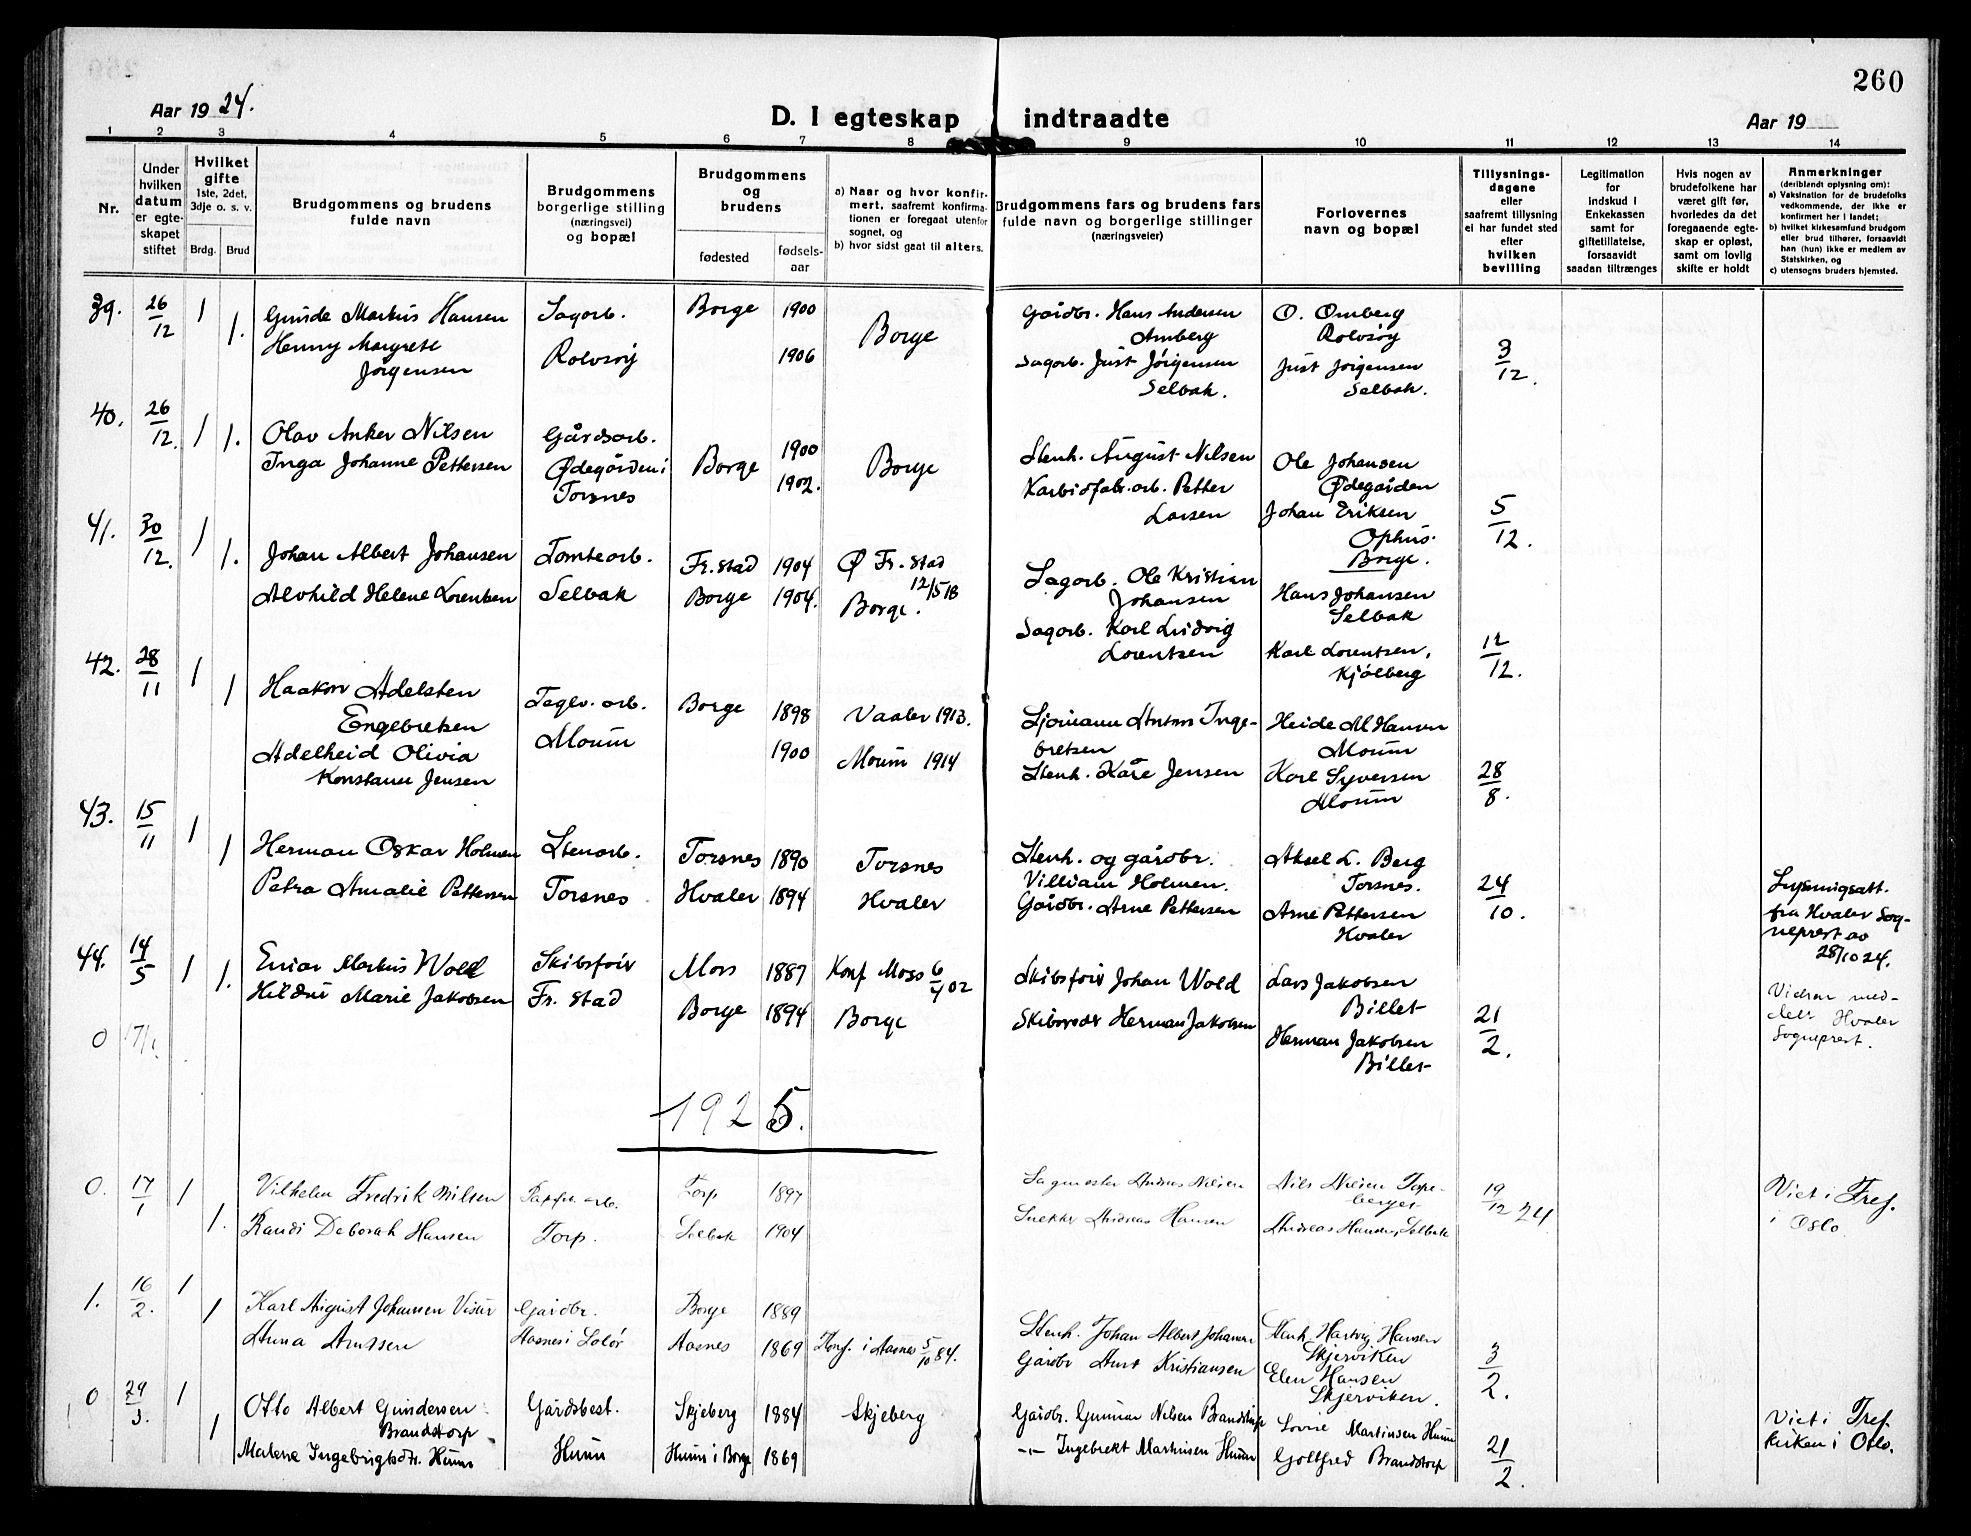 260
Aar 1924.
D. I egteskap indtraadte
Aar 19
1 2 3 4 5 6 7 8 9 10 11 12 13 14
Nr.
Under hvilken datum er egteskapet stiftet
Hvilket gifte 1ste, 2det, 3dje o. s. v.
Brdg. Brud
Brudgommens og brudens fulde navn
Brudgommens borgerlige stilling (næringsvei) og bopæl
Brudgommens og brudens
fødested fødselsaar
a) Naar og hvor konfirmert, saafremt konfirmationen er foregaat utenfor sognet, og
b) hvor sidst gaat til alters.
Brudgommens fars og brudens fars fulde navn og borgerlige stillinger (næringsveier)
Forlovernes navn og bopæl
Tillysningsdagene eller saafremt tillysning ei har fundet sted efter hvilken bevilling
Legitimation for indskud i Enkekassen samt for giftetillatelse, forsaavidt saadan tiltrænges
Hvis nogen av brudefolkene har været gift før, hvorledes da det foregaaende egteskap er opløst, samt om lovlig skifte er holdt
Anmerkninger (deriblandt oplysning om):
a) Vaksination for de brudefolks vedkommende, der ikke er konfirmert her i landet;
b) hvilket kirkesamfund brudgom eller brud tilhører, forsaavidt han (hun) ikke er medlem av Statskirken, og
c) utensogns bruders hjemsted.
39. 26/12 1 Gunde Markus Hansen Sagarb. Borge 1900 Borge Gårdbr. Hans Andersen O. Omberg
1. Henny Margrete Rolvsøy 1906 Amberg Rolvsøy 3/12.
Jørgensen Sagarb. Just Jørgensen Just Jörgensen
Selbak. Selbak.
40. 26/12. 1 1. Olav Anker Nilsen Gårdsarb. Borge 1900 Borge Stenh. August Nilsen Ole Johansen
Inga Johanne Pettersen Ødegården i 1902. Karbidfabr.arb. Petter Ødegaarden
Torsnes Larsen Johan Eriksen 5/12.
Ophus.
Borge.
41. 30/12. 1 1. Johan Albert Johansen Tomtearb. Fr.stad 1904 Ø Fr.stad 12/5 18 Sagarb. Ole Kristian Johansen Hans Johansen
Alvhild Helene Lorentsen Selbak Borge 1904. Borge. Selbak
Sagarb. Karl Ludvig Karl Lorentsen, 12/12.
Lorentsen Kjølberg
42. 28/11 1 1 Haakon Adelsten Teglv. arb. Borge 1898 Vaaler 1913. Sjömann Anton Inge- Heide M Hansen
Engebretsen Moum bretsen Moum
Adelheid Olivia 1900 Moum 1914 Stenh. Kåre Jensen Karl Syversen 28/8.
Konstanse Jensen Moum
43. 15/11 1 1 Herman Oskar Holmen Stenarb. Torsnes 1890 Torsnes Stenh. og gårdbr. Aksel L. Berg
Villiam Holmen. Torsnes. 24/10.
Petra Amalie Pettersen Torsnes Hvaler 1894 Hvaler Gårdbr. Arne Pettersen Arne Pettersen
Hvaler
Lysningsatt. fra Hvaler Sogneprest av 28/10 24.
44. 14/5 1 1. Einar Markus Wold Skibsfører Moss 1887 Konf Moss 6/4 02 Skibsfører Johan Wold Lars Jakobsen
Hildur Marie Jakobsen Fr. stad Borge 1894 Borge Skibsreder Herman Jakobsen Billet 21/2.
0 17/1 Herman Jakobsen
Billet
Vielsen meddelt Hvaler Sogneprest.
1925.
0. 17/1 1 Vilhelm Fredrik Nilsen Pappfa. arb. Torp 1897 Sagmester Andreas Nilsen Nils Nilsen Torpeberget 19/12 24 Viet i Fref.
1. Randi Deborah Hansen Torp. Selbak 1904 Snekker Andreas Hansen Andreas Hansen, Selbak i Oslo
1. 16/2. 1 Karl August Johansen Visur Gårdbr. Borge 1889 Stenh. Johan Albert Johansen Stenh. Hartvig Hansen
1 Anna Amssen Aasnes i Solør Aasnes 1869 Konf. i Aasnes 5/10 84. Gårdbr Amt Kristiansen Skjerviken 3/2.
Elen Hansen
Skjerviken.
0 29/3. 1 Otto Albert Gundersen Gårdsbest. Skjeberg 1884 Skjeberg Gårdbr. Gunnar Nilsen Brandstorp Lovise Martinsen Hunn Viet i Fref.
1 Brandstorp kirken i Oslo.
Malene Ingebrigtsdtr. Hunn Hunn Hunn i Borge 1869 -"- Ingebrekt Martinsen Hunn Gottfred Brandstorp 21/2.